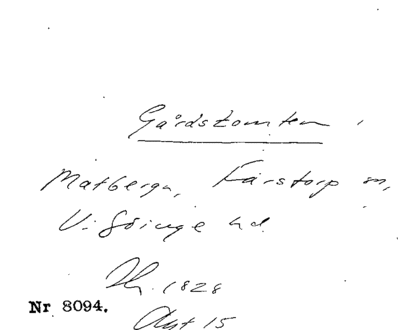 Gårdstomten
Matberga, Farstorp sn,
V. Göinge hd.
1828
Nr 8094.
Akt 15